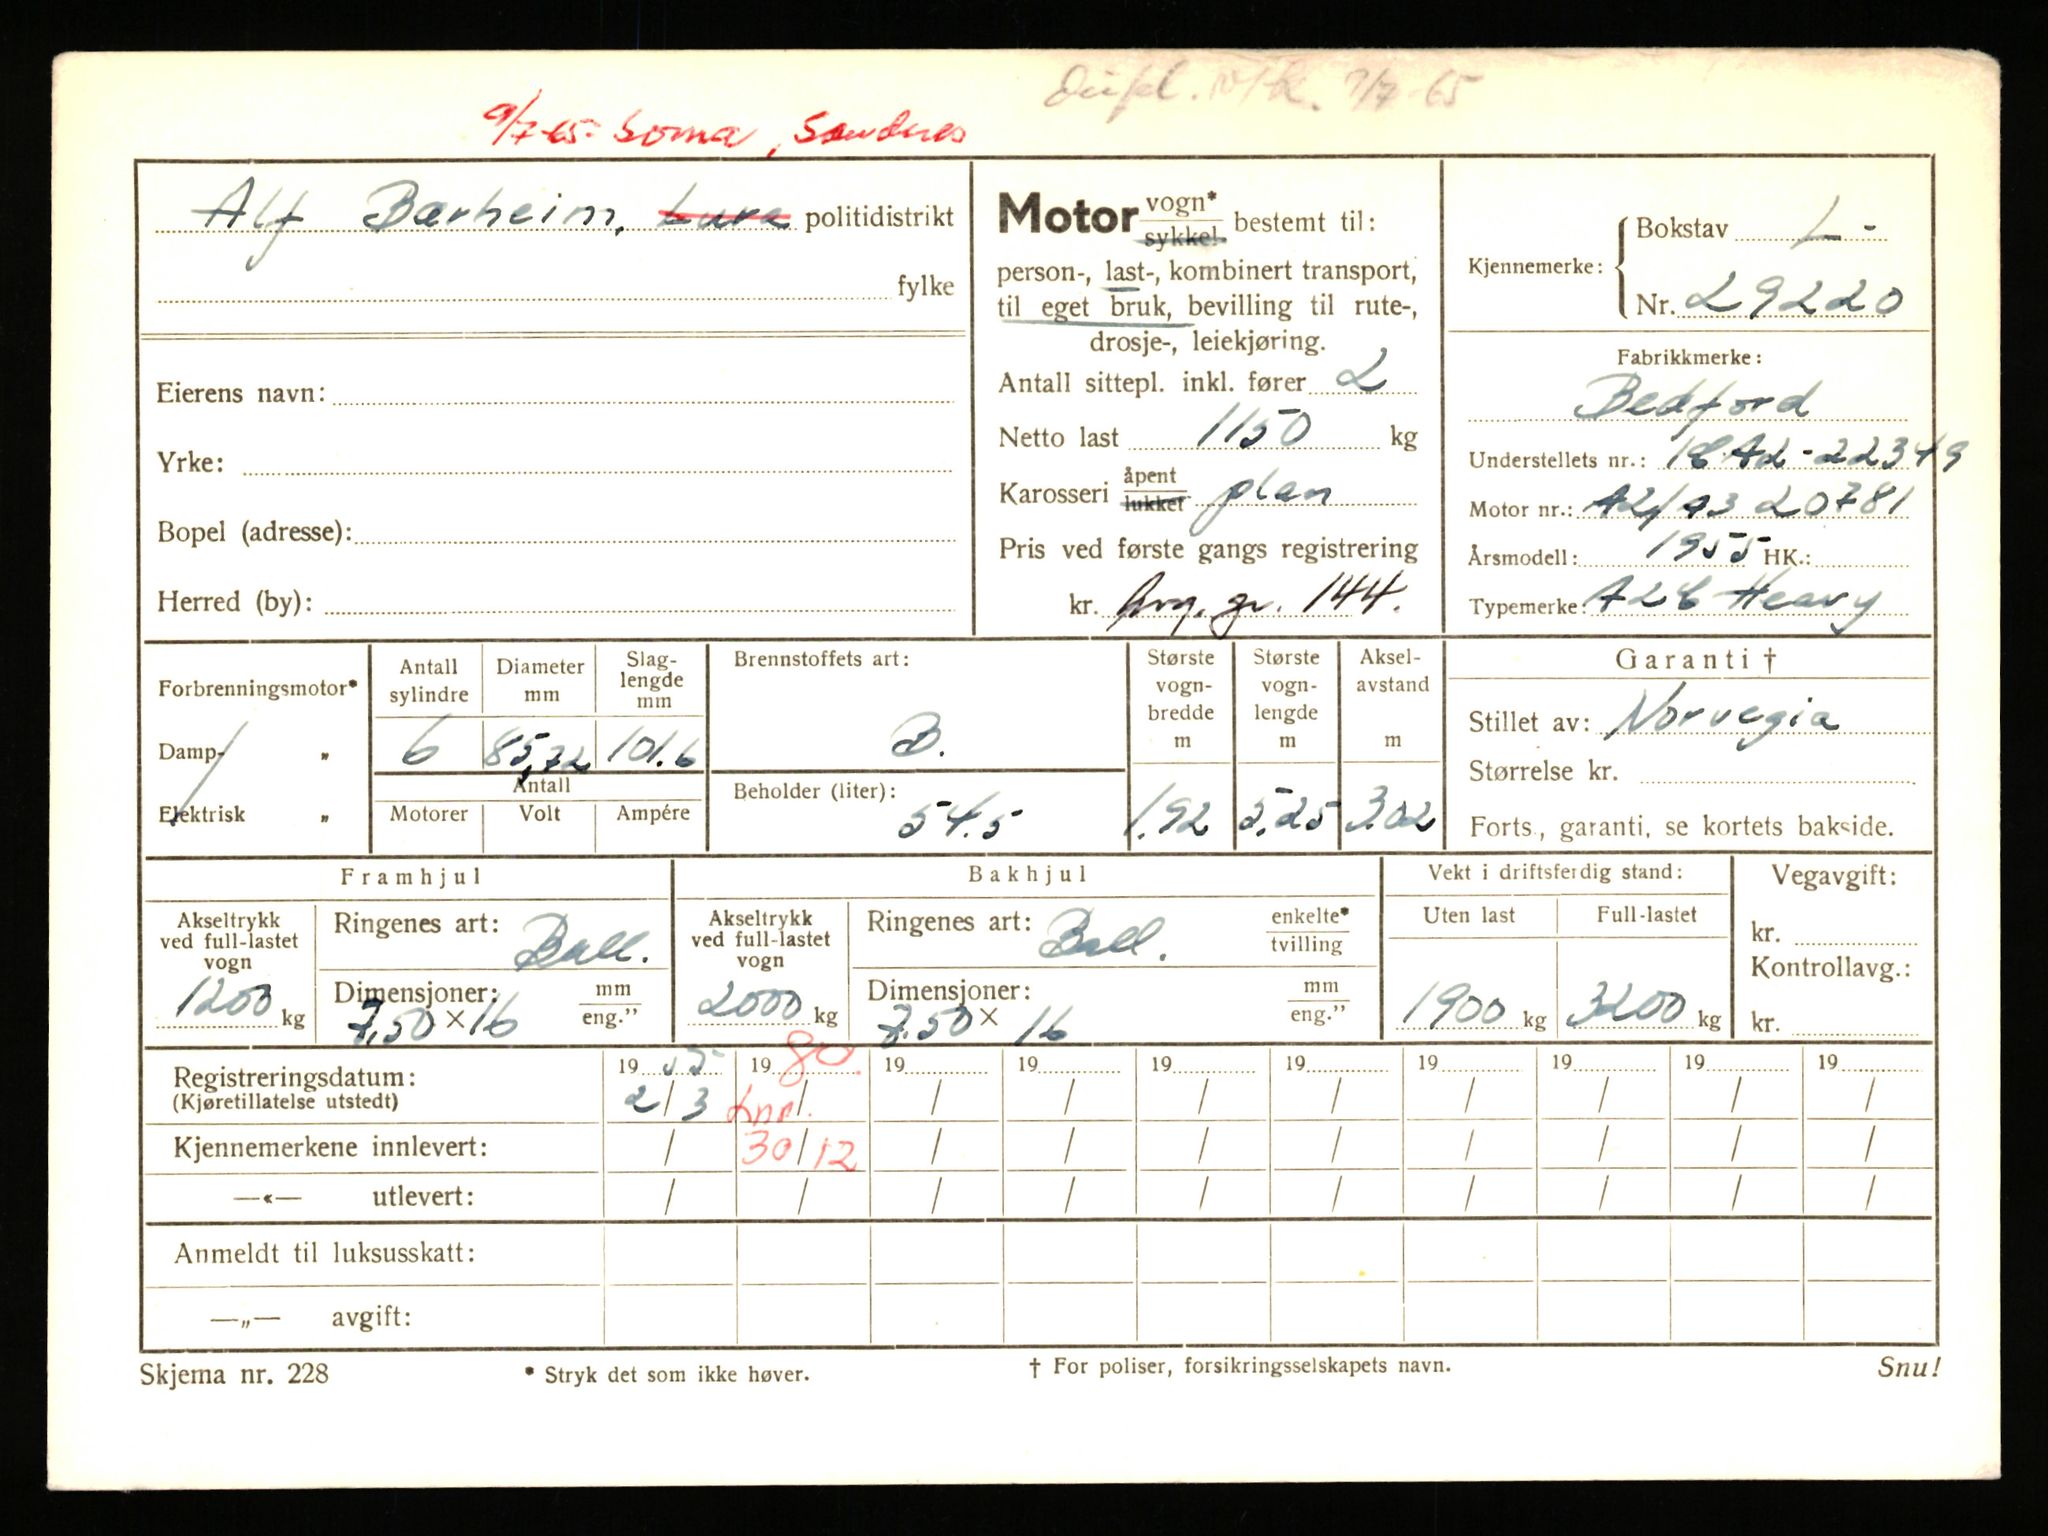 Dupl. v/k. 7/7-65
9/7-65 Soma, Sandnes
Alf Bærheim, Lura politidistrikt
fylke
Eierens navn:
Yrke:
Bopel (adresse):
Herred (by):
Motor vogn* sykkel bestemt til:
person-, last-, kombinert transport,
til eget bruk, bevilling til rute-,
drosje-, leiekjøring.
Antall sittepl. inkl. fører 2
Netto last 1150 kg
Karosseri åpent lukket plan
Pris ved første gangs registrering
kr. Avg. gr. 144.
Kjennemerke: Bokstav L-
Nr. 29220
Fabrikkmerke:
Bedford
Understellets nr.: 1CA2-22349
Motor nr.: A2/A3 20781
Årsmodell: 1955 HK.:
Typemerke: A2C Heavy
Forbrenningsmotor*
Damp- „
Elektrisk „
Antall sylindre
6
Diameter mm
85,72
Slag-lengde mm
101.6
Antall
Motorer Volt Ampére
Brennstoffets art:
B.
Beholder (liter):
54.5
Største vogn-bredde m
1.92
Største vogn-lengde m
5.25
Aksel-avstand m
3.02
Garanti †
Stillet av: Norvegia
Størrelse kr.
Forts., garanti, se kortets bakside.
Framhjul
Akseltrykk ved full-lastet vogn
1200 kg
Ringenes art: Ball.
Dimensjoner: mm eng.”
7,50 × 16
Bakhjul
Akseltrykk ved full-lastet vogn
2000 kg
Ringenes art: Ball. enkelte* tvilling
Dimensjoner: mm eng.”
7.50 × 16
Vekt i driftsferdig stand:
Uten last Full-lastet
1900 kg 3200 kg
Vegavgift:
kr.
Kontrollavg.:
kr.
19 55 19 80. 19 19 19 19 19 19 19 19
Registreringsdatum: 2/3 Lnr. / / / / / / / / /
(Kjøretillatelse utstedt)
Kjennemerkene innlevert: / 30/12 / / / / / / / /
—«— utlevert: / / / / / / / / / /
Anmeldt til luksusskatt:
—„— avgift:
Skjema nr. 228 * Stryk det som ikke høver. † For poliser, forsikringsselskapets navn. Snu!